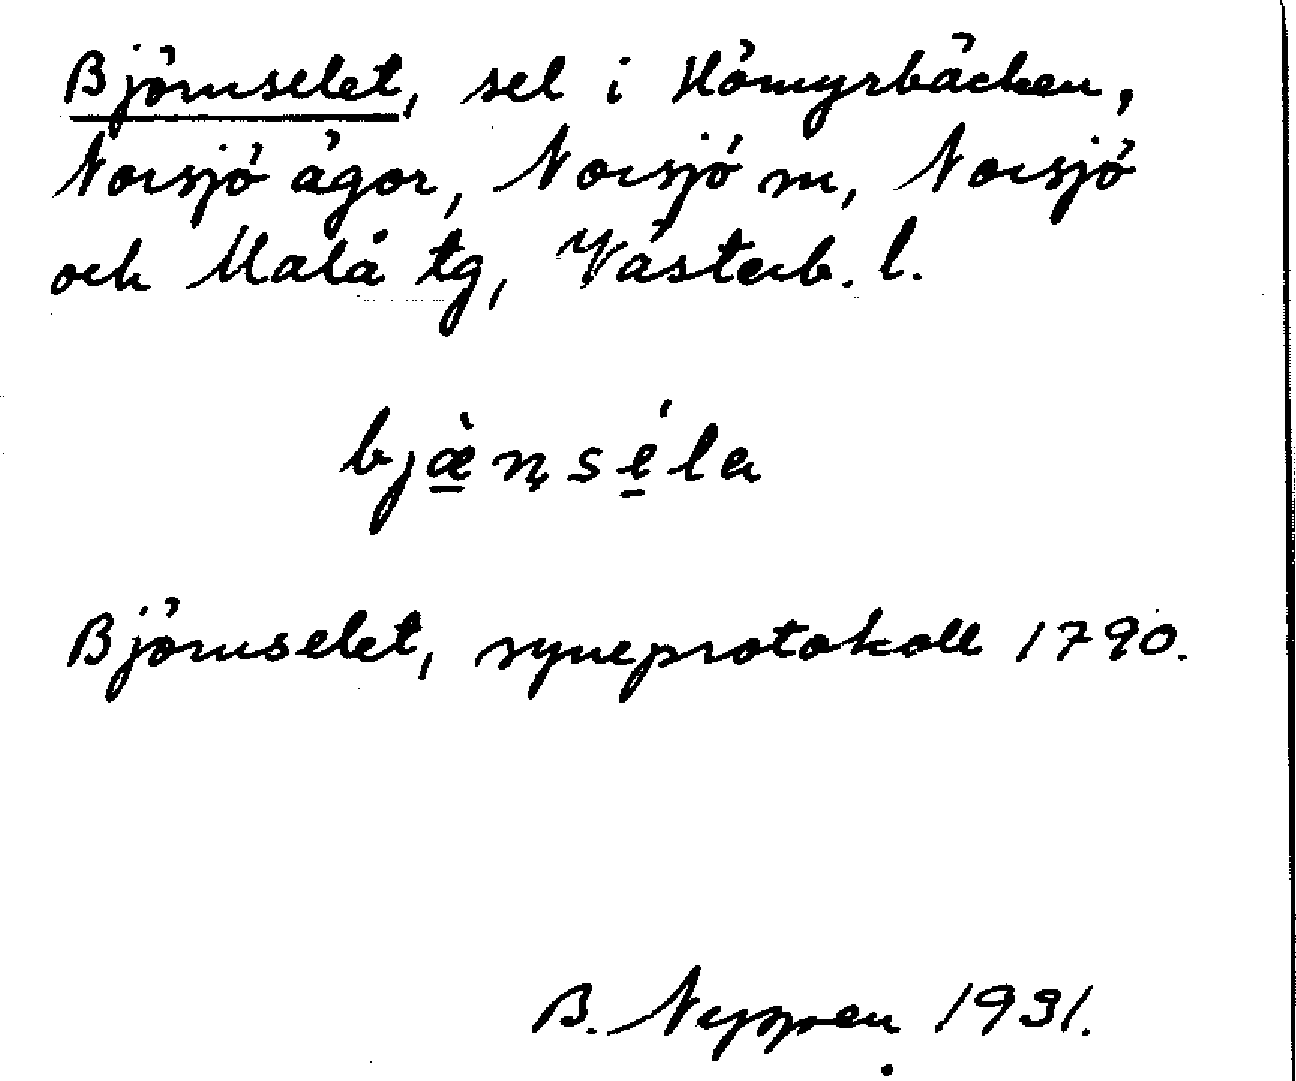 Björnselet, sel i Hömyrbäcken,
Norsjö ägor, Norsjö sn, Norsjö
och Malå tg, Västerb. l.
bjæ̀n̥séla
Björnselet, syneprotokoll 1790.
B. 1931.